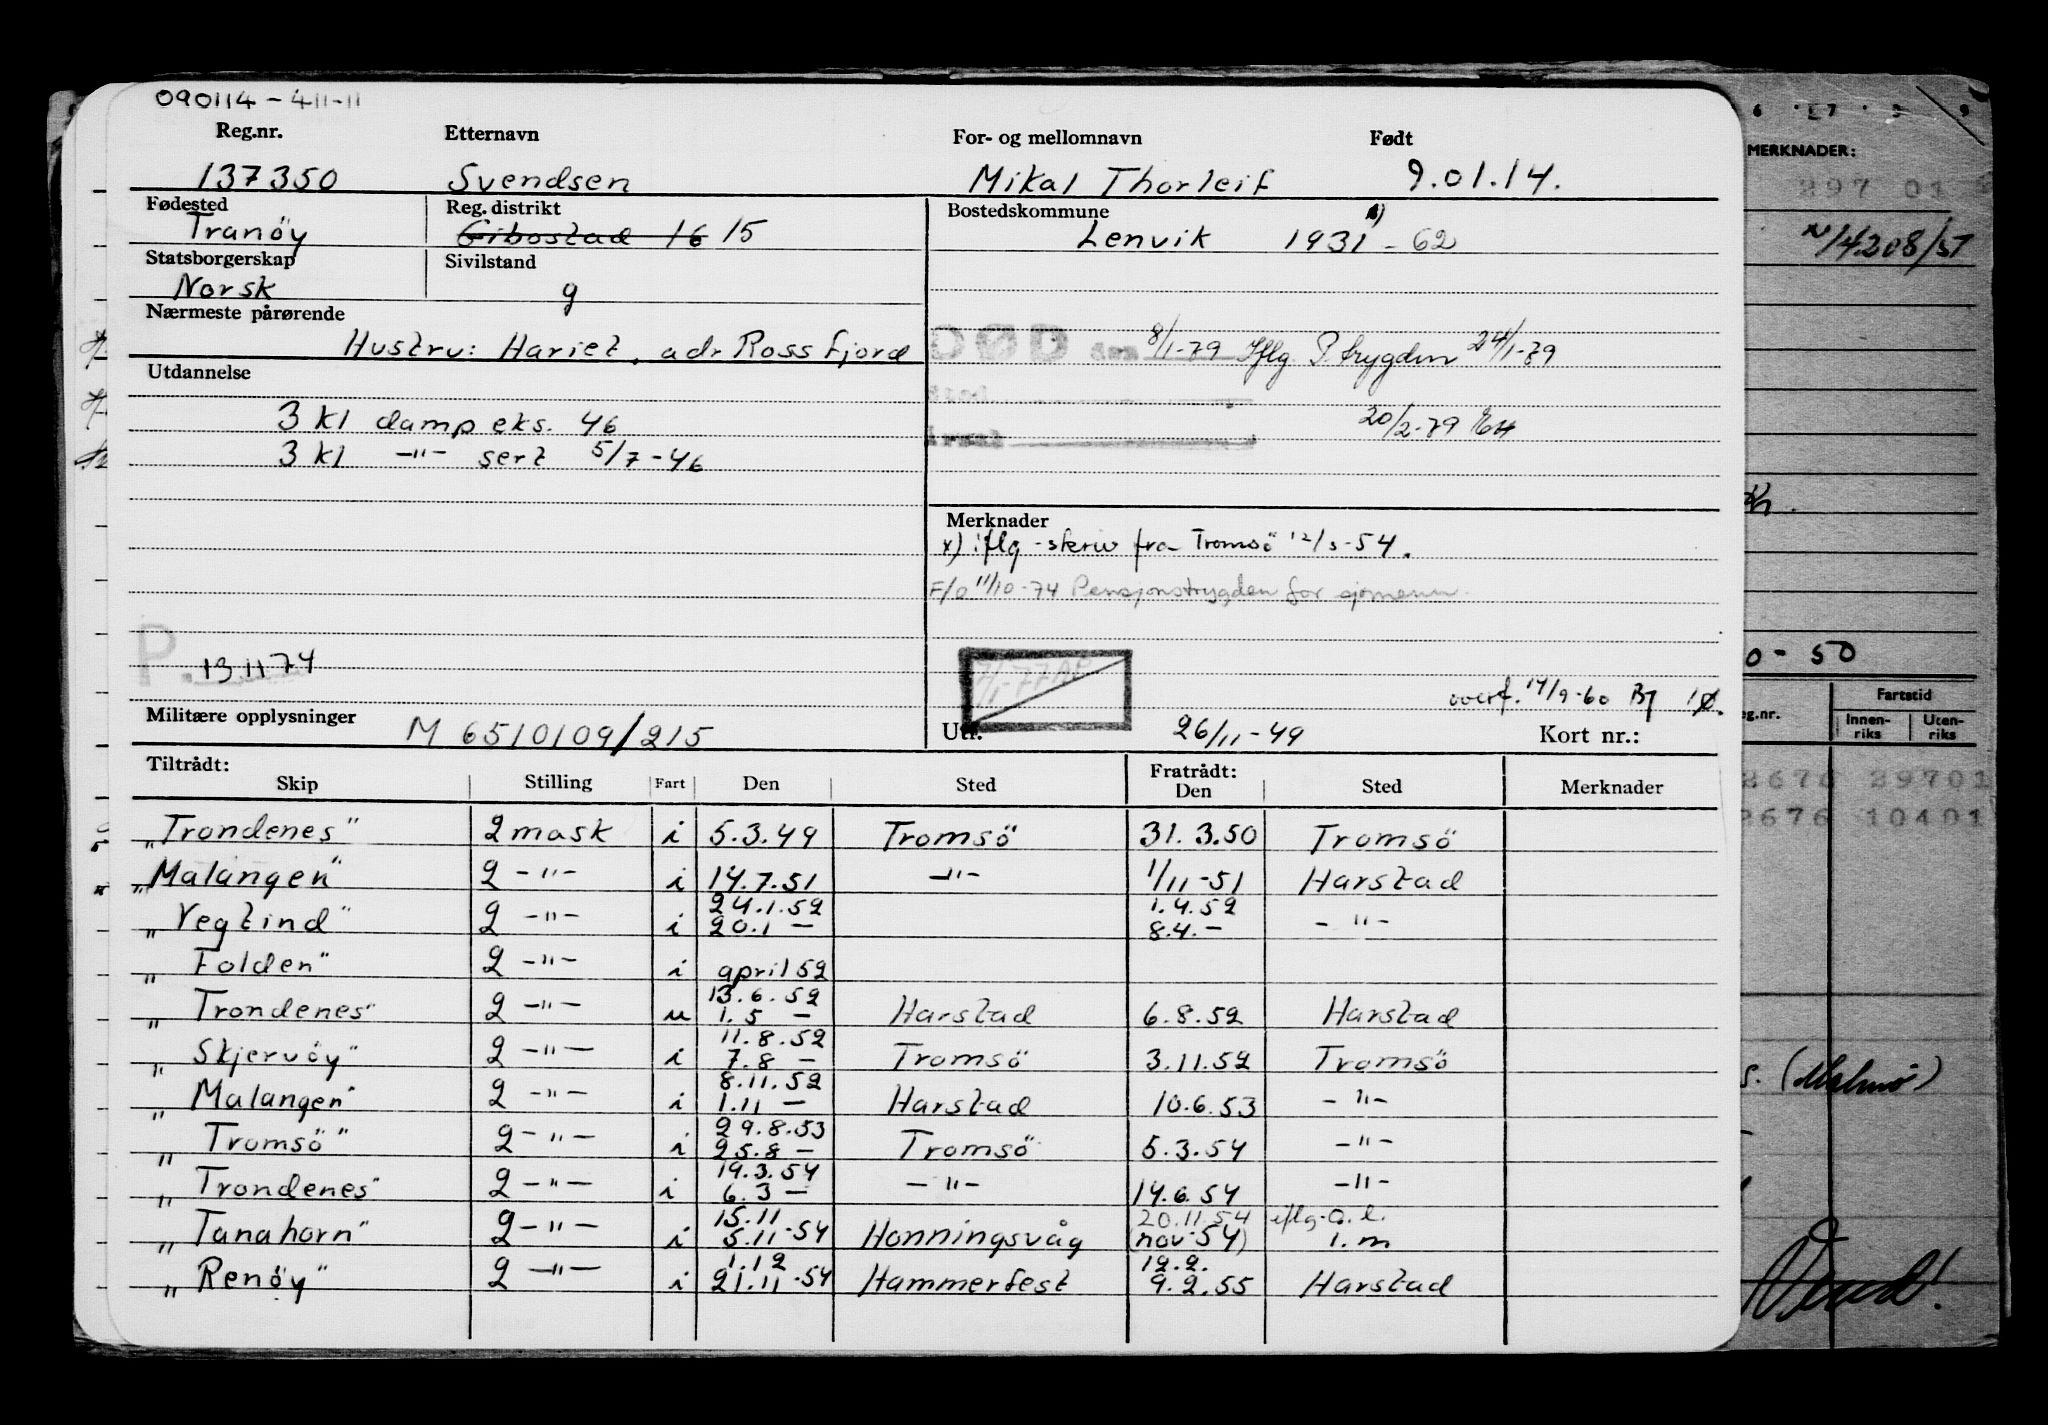 090114 - 411-11
Reg.nr. Etternavn For- og mellomnavn Født
137350 Svendsen Mikal Thorleif 9.01.14.
Fødested Reg. distrikt Bostedskommune
Tranöy Gibostad 16 15 Lenvik 1931 - 62
Statsborgerskap Sivilstand
Norsk g
Nærmeste pårørende
Hustru: Hariet, adr Rossfjord
DØD 8/1-79 Iflg. P.trygden 24/1-79
Utdannelse
20/2-79
3 kl damp eks. 46
3 kl -"- sert 5/7-46
Merknader
x) iflg -skriv fra Tromsö 12/3-54.
F/o 11/10-74 Pensjonstrygden for sjömenn
P. 131174
overf. 14/9-60
Militære opplysninger M 6510109/215
Utf. 26/11-49 Kort nr.:
Tiltrådt: Fratrådt:
Skip Stilling Fart Den Sted Den Sted Merknader
"Trondenes" 2 mask i 5.3.49 Tromsö 31.3.50 Tromsö
"Malangen" 2 -"- i 14.7.51 -"- 1/11-51 Harstad
24.1.52 1.4.52
"Vegtind" 2 -"- i 20.1 - 8.4. - -"-
"Folden" 2 -"- i april 52
13.6.52
"Trondenes" 2 -"- u 1.5 - Harstad 6.8.52 Harstad
11.8.52
"Skjervöy" 2 -"- i 7.8 - Tromsö 3.11.52 Tromsö
8.11.52
"Malangen" 2 -"- i 1.11 - Harstad 10.6.53 -"-
29.8.53
"Tromsö" 2 -"- i 25.8 - Tromsö 5.3.54 -"-
19.3.54
"Trondenes" 2 -"- i 6.3 - -"- 14.6.54 -"-
15.11 20.11.54 iflg. a.l.
"Tanahorn" 2 -"- i 5.11-54 Honningsvåg (nov-54) i.m
1.12 12.2.
"Renöy" 2 -"- i 21.11-54 Hammerfest 9.2.55 Harstad
MERKNADER:
397 01
14208/51
0 - 50
Fartstid
eg.nr. Innen-riks Uten-riks
3676 39701
3676 10401
s. (Malmö)
Vend!